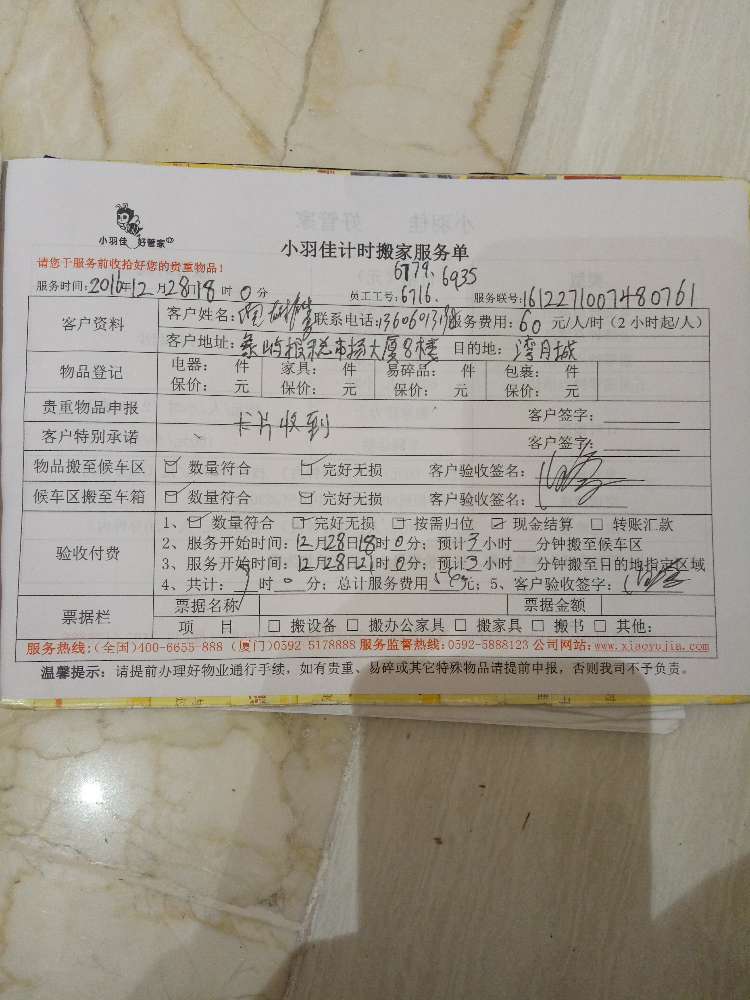 小羽佳 好管家
小羽佳计时搬家服务单
请您于服务前收拾好您的贵重物品!
6779、6935
服务时间:2016年12月28日18时0分 员工工号:6716、 服务联号:1612271007480761
客户资料 客户姓名: 联系电话: 服务费用:60元/人/时(2小时起/人)
客户地址:象屿报税市场大厦8楼 目的地:湾月城
物品登记 电器: 件 家具: 件 易碎品: 件 包裹: 件
保价: 元 保价: 元 保价: 元 保价: 元
贵重物品申报 客户签字:
卡片收到
客户特别承诺 客户签字:
物品搬至候车区 ☑ 数量符合 ☑ 完好无损 客户验收签名:
候车区搬至车箱 ☑ 数量符合 ☑ 完好无损 客户验收签名:
验收付费 1、☑ 数量符合 ☑ 完好无损 ☐ 按需归位 ☑ 现金结算 ☐ 转账汇款
2、服务开始时间:12月28日18时0分;预计3小时___分钟搬至候车区
3、服务开始时间:12月28日21时0分;预计3小时___分钟搬至目的地指定区域
4、共计: 时0分;总计服务费用 元;5、客户验收签字:
票据栏 票据名称 票据金额
项 目 ☐ 搬设备 ☐ 搬办公家具 ☐ 搬家具 ☐ 搬书 ☐ 其他:
服务热线:(全国)400-6655-888 (厦门)0592 5178888 服务监督热线:0592-5888123 公司网站:www.xiaoyujia.com
温馨提示:请提前办理好物业通行手续,如有贵重、易碎或其它特殊物品请提前申报,否则我司不予负责。